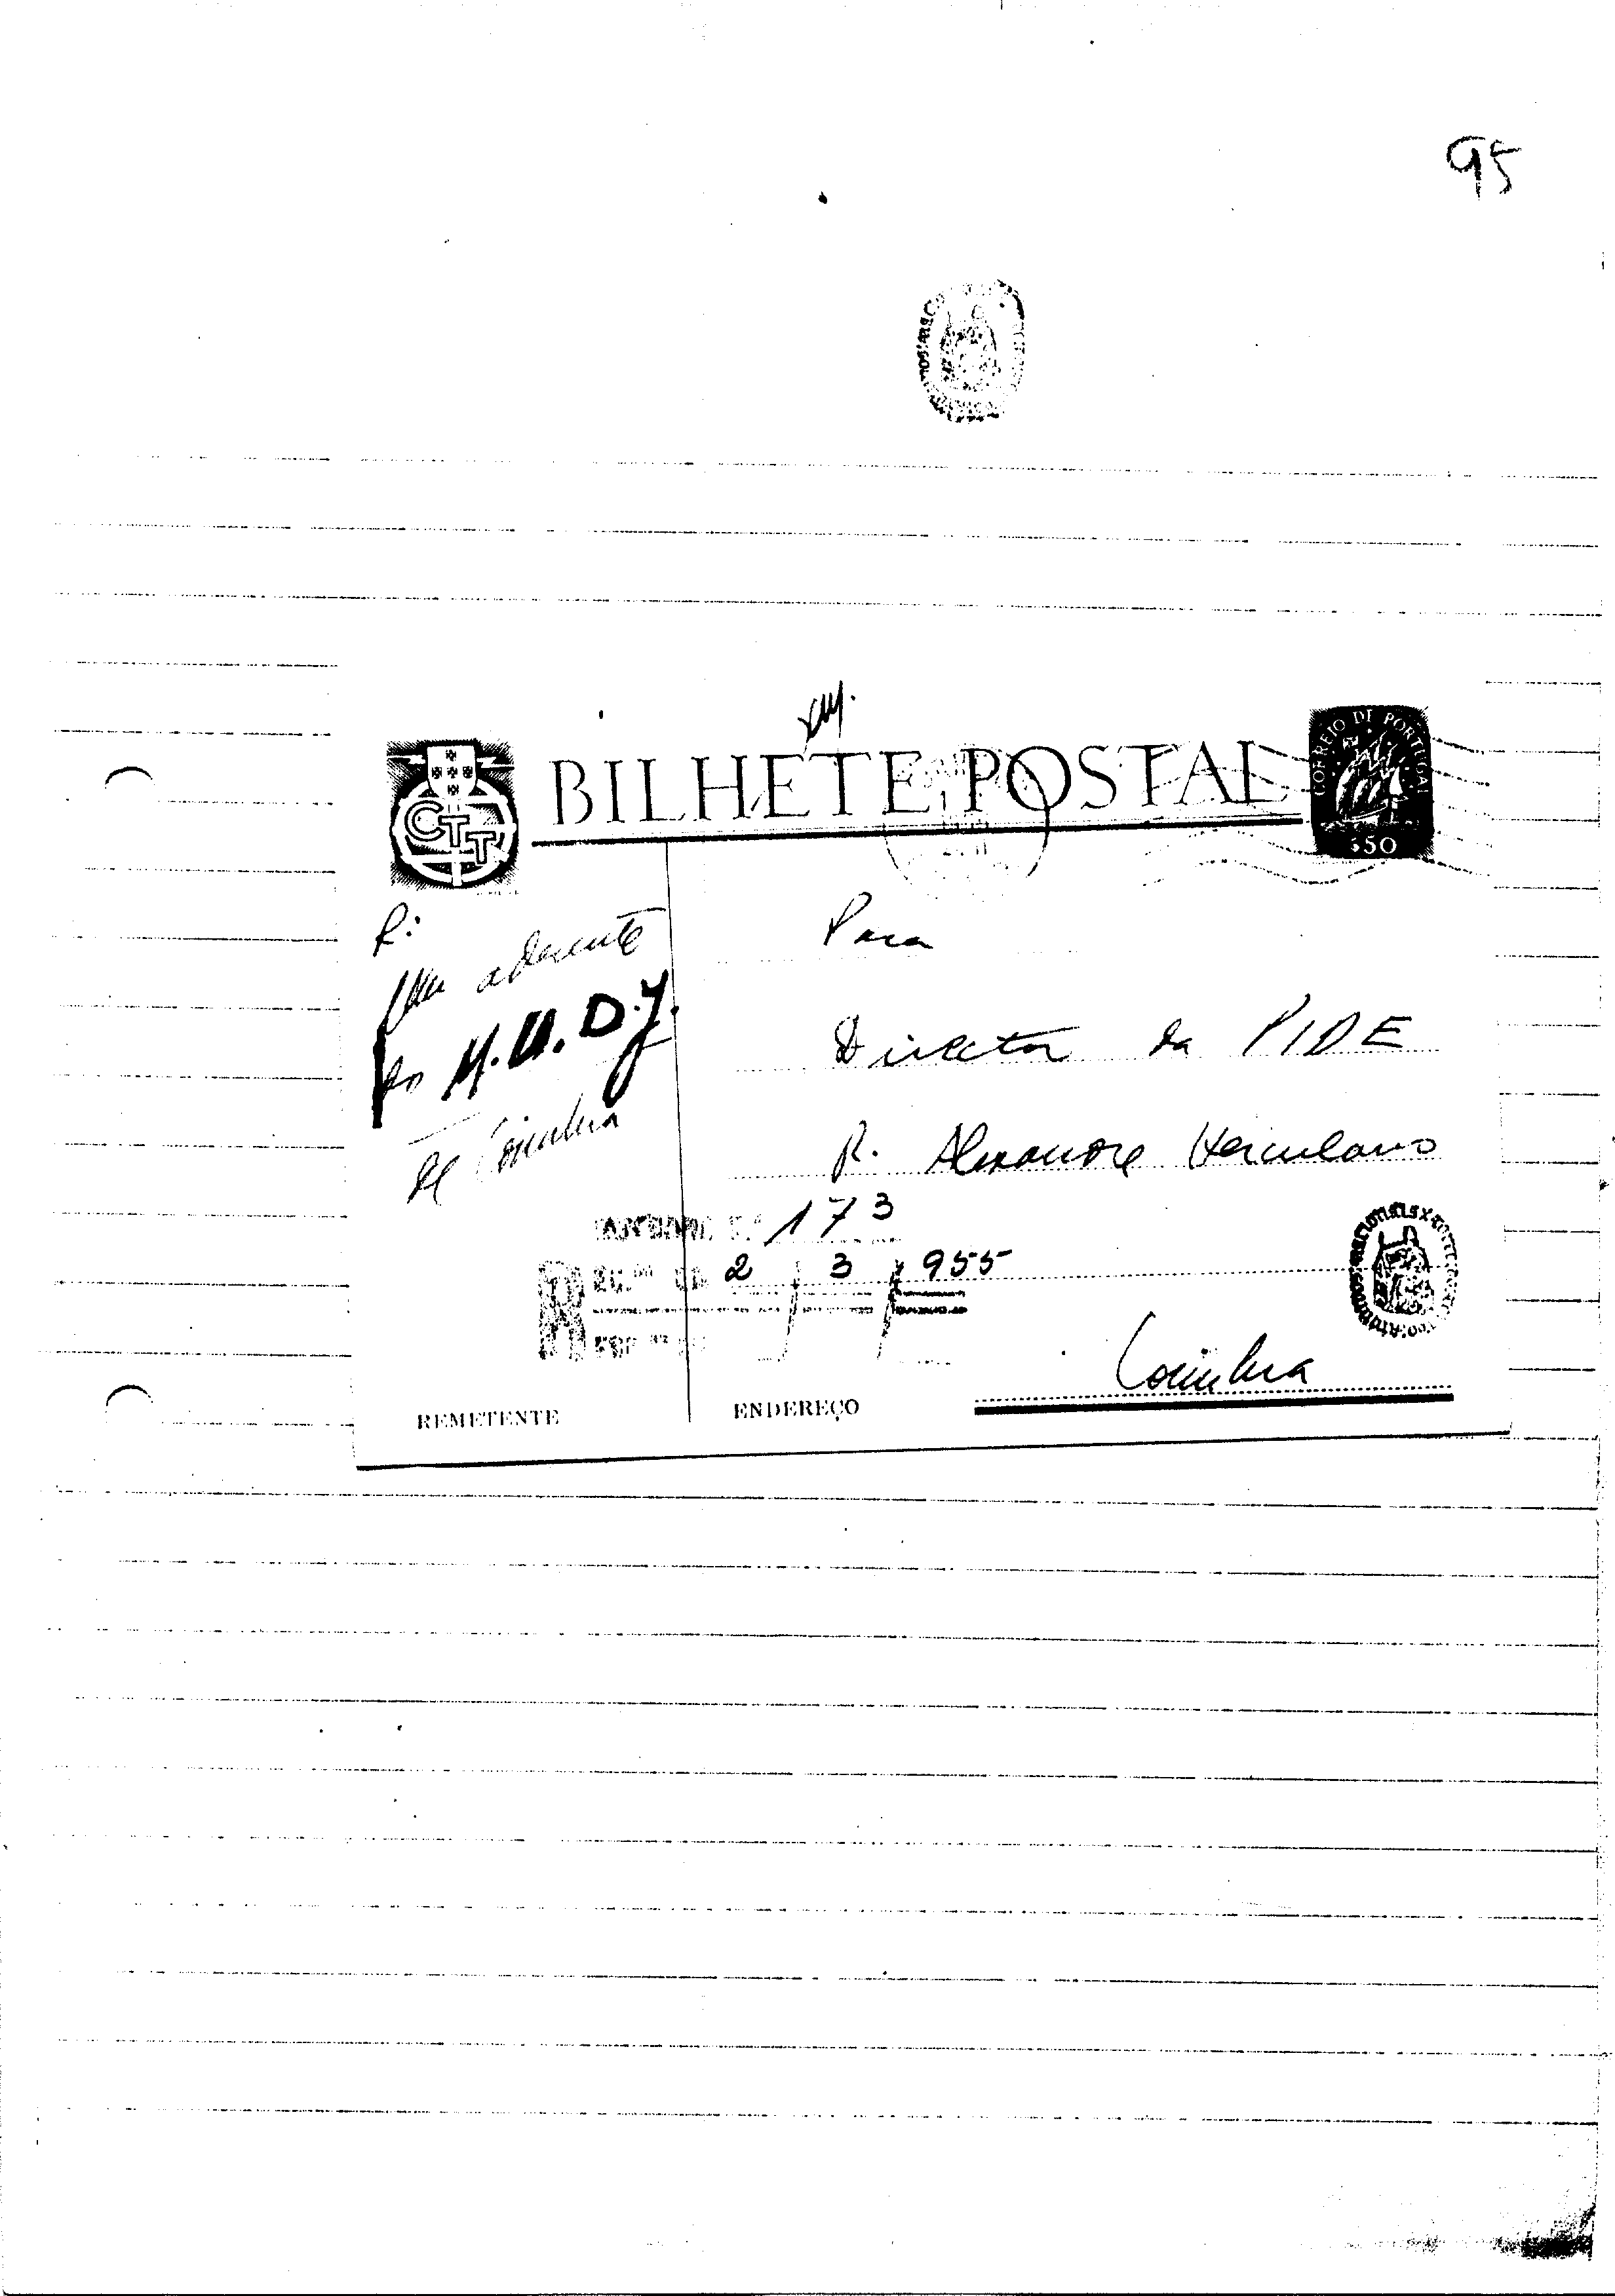 95
BILHETE POSTAL
CTT
CORREIO DE PORTUGAL
$50
R:
Um aderente
do M.U.D.J.
de Coimbra
Para
Director da PIDE
R. Alexandre Herculano
173
2 3 1955
Coimbra
REMETENTE
ENDEREÇO